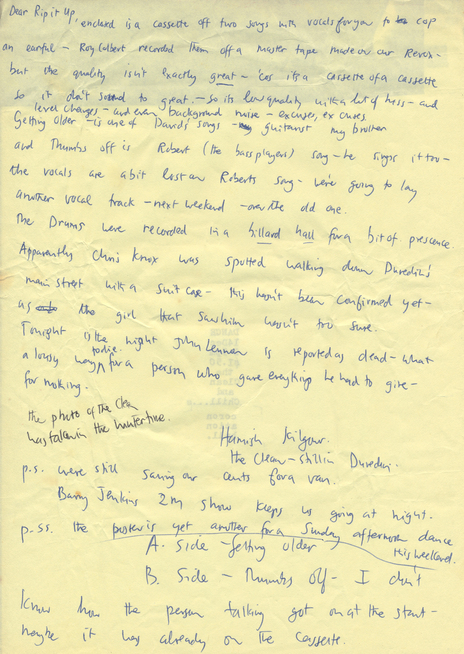 Dear Rip it Up,
enclosed is a cassette off two songs with vocals for you to cop
an earful - Roy Colbert recorded them off a master tape made on our Revox -
but the quality isn't exactly great - 'cos its a cassette of a cassette
so it don't sound to great. - so its low quality with a lot of hiss - and
level changes - and even background noise - excuses, excuses.
Getting older - is one of Davids songs - guitarist my brother
and Thumbs off is Robert (the bass players) song - he sings it too -
the vocals are a bit lost on Roberts song - we're going to lay
another vocal track - next weekend - over the old one.
The Drums were recorded in a billard hall for a bit of prescence.
Apparently Chris Knox was spotted walking down Dunedin's
main street with a suit case - this hasn't been confirmed yet -
as the girl that saw him wasn't too sure.
Tonight is the night John Lennon is reported as dead - what
a lousy way to die for a person who gave everything he had to give -
for nothing.
the photo of the Clean
was taken in the winter time.
Hamish Kilgour.
the Clean - still in Dunedin.
p.s. we're still saving our cents for a van.
Barry Jenkins ZM show keeps us going at night.
p.ss. the poster is yet another for a Sunday afternoon dance
this weekend.
A. Side - getting older
B. Side - Thumbs off - I don't
know how the person talking got on at the start -
maybe it was already on the cassette.